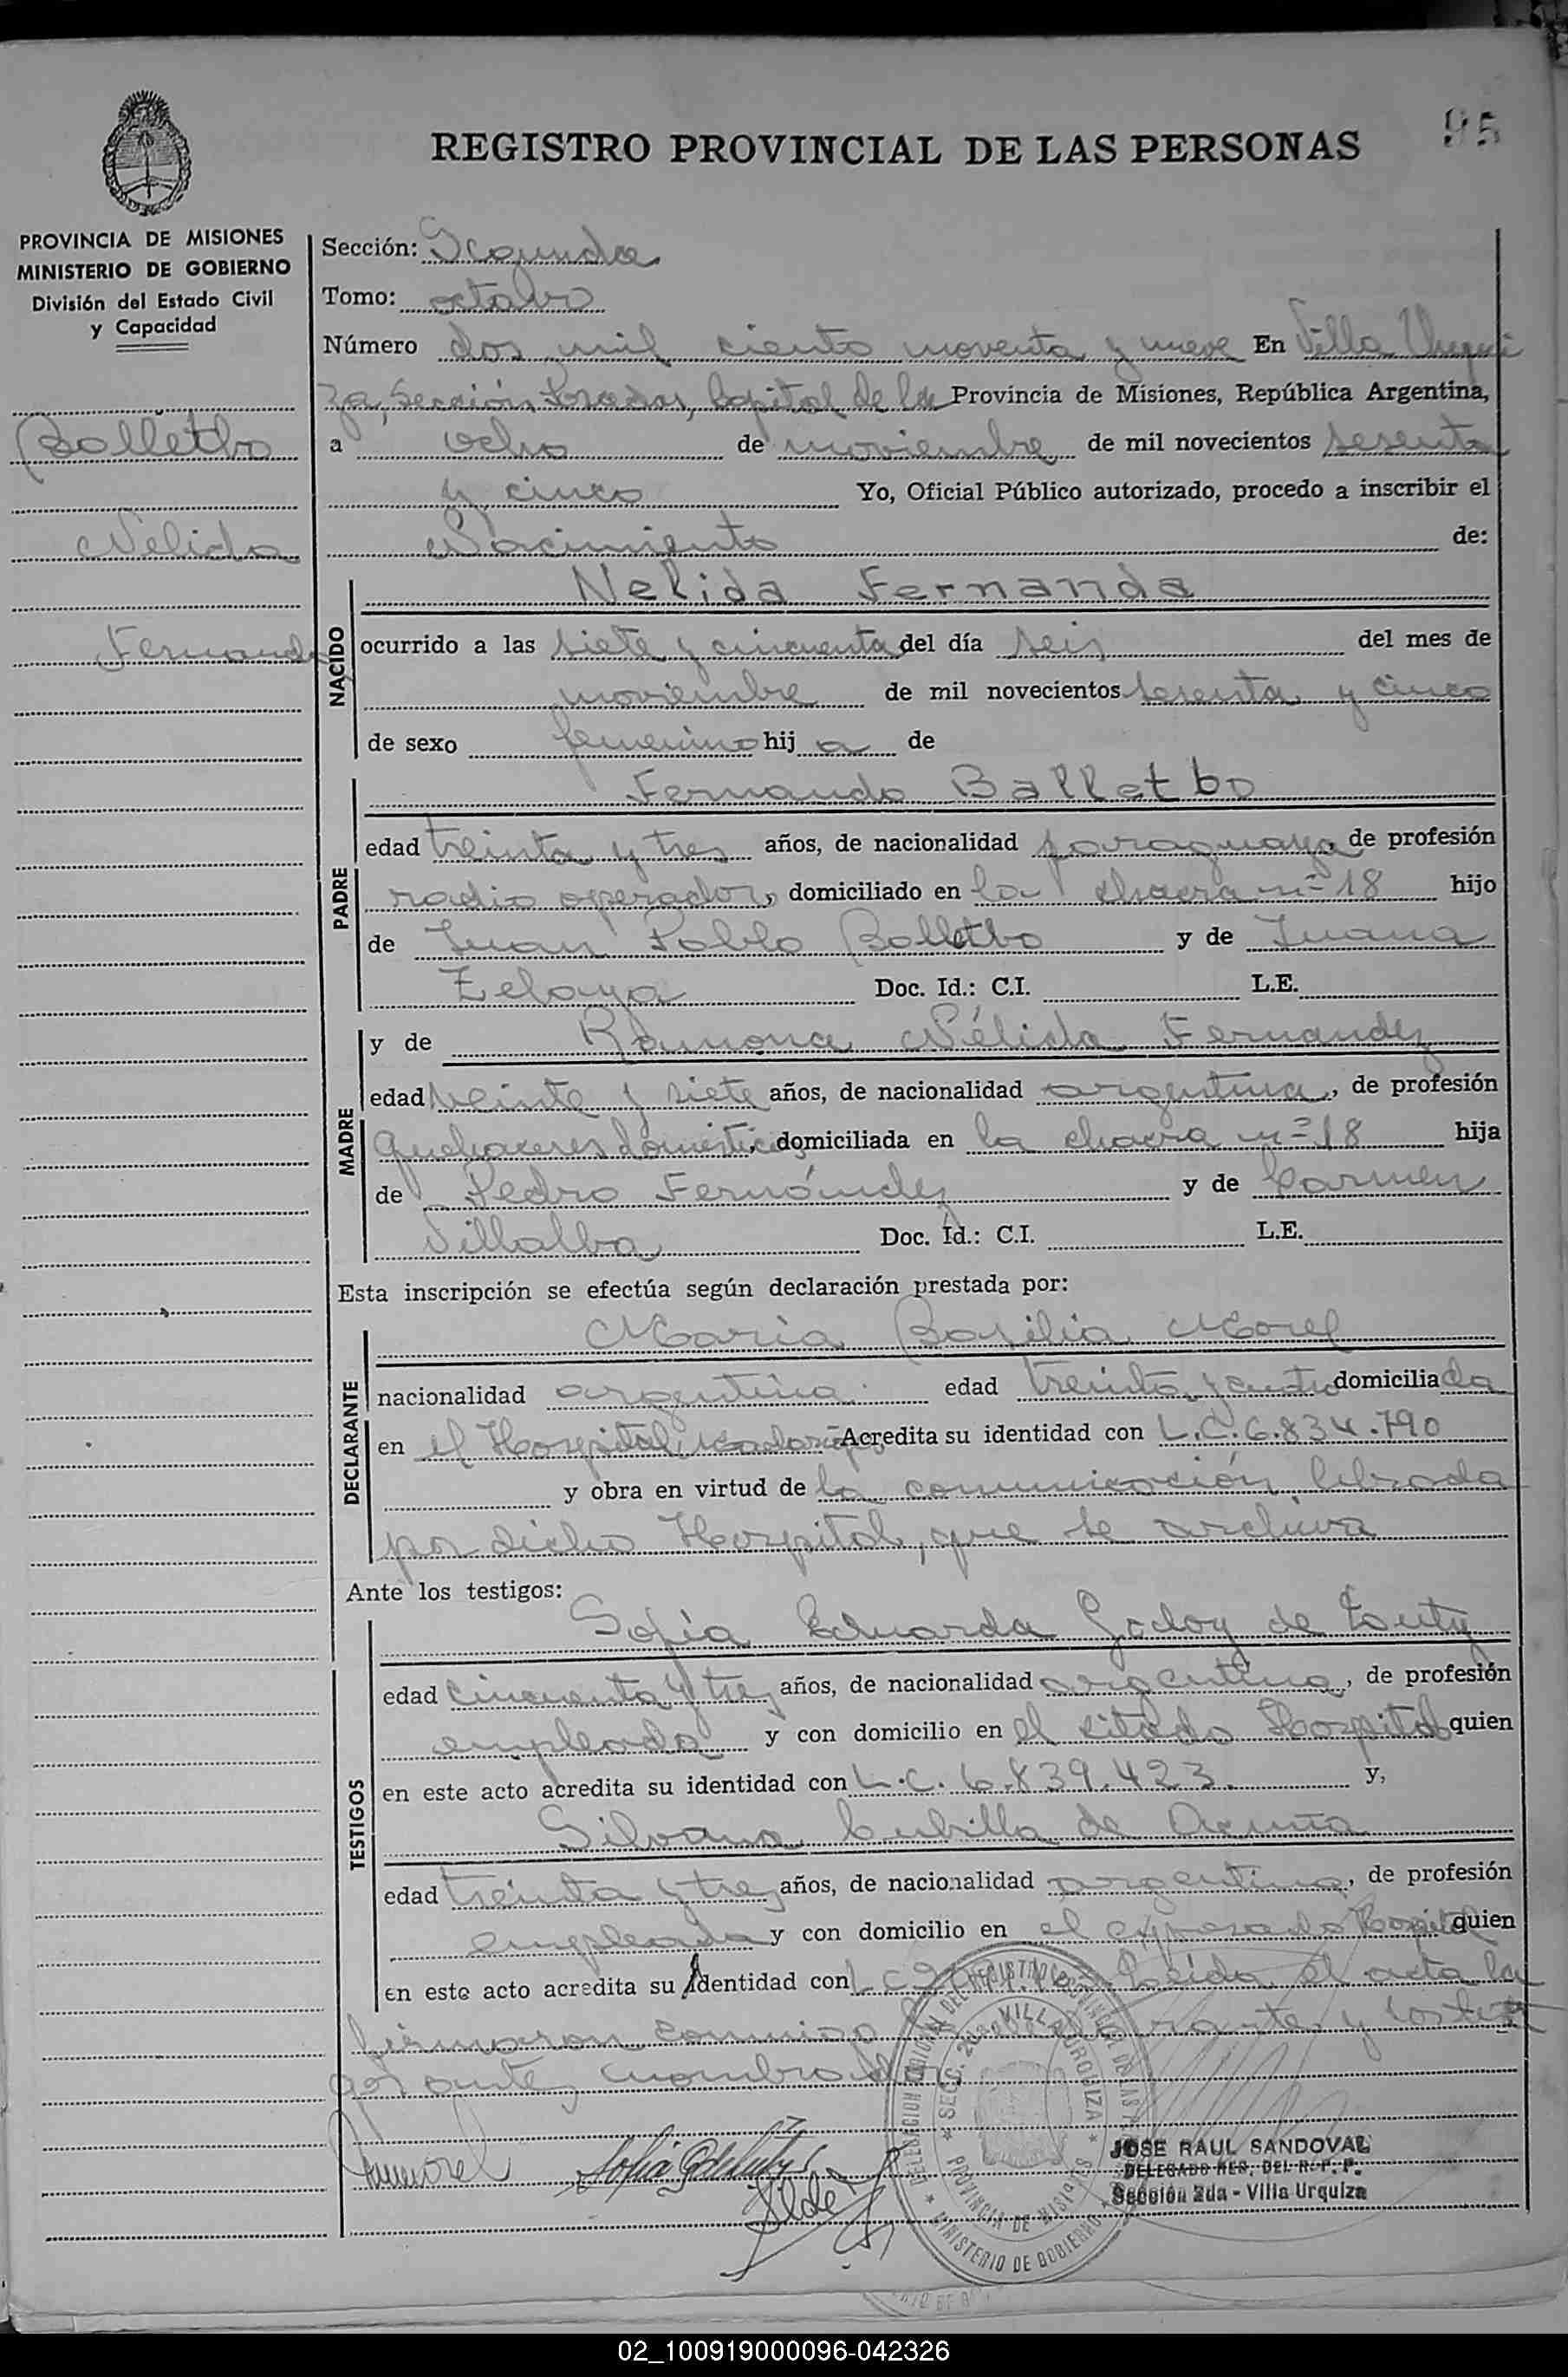 95
REGISTRO PROVINCIAL DE LAS PERSONAS
PROVINCIA DE MISIONES
MINISTERIO DE GOBIERNO
División del Estado Civil
y Capacidad
Balletbo
Nélida
Fernanda
Sección: Segunda
Tomo: octavo
Número dos mil ciento noventa y nueve En Villa Urqui
za, Sección Posadas, Capital de la Provincia de Misiones, República Argentina,
a ocho de noviembre de mil novecientos sesenta
y cinco Yo, Oficial Público autorizado, procedo a inscribir el
Nacimiento de:
NACIDO
Nelida Fernanda
ocurrido a las siete y cincuenta del día seis del mes de
noviembre de mil novecientos sesenta y cinco
de sexo femenino hij a de
PADRE
Fernando Balletbo
edad treinta y tres años, de nacionalidad paraguaya, de profesión
radio operador, domiciliado en la chacra nº 18 hijo
de Juan Pablo Balletbo y de Juana
Zelaya Doc. Id.: C.I. L.E.
MADRE
y de Ramona Nélida Fernandez
edad veinte y siete años, de nacionalidad argentina, de profesión
quehaceres domésticos, domiciliada en la chacra nº 18 hija
de Pedro Fernández y de Carmen
Villalba Doc. Id.: C.I. L.E.
Esta inscripción se efectúa según declaración prestada por:
DECLARANTE
María Basilia Morel
nacionalidad argentina edad treinta y cuatro domiciliada
en el Hospital Madariaga Acredita su identidad con L.C. 6.834.790
y obra en virtud de la comunicación librada
por dicho Hospital, que se archiva
Ante los testigos:
TESTIGOS
Sofía Eduarda Godoy de
edad cincuenta y tres años, de nacionalidad argentina, de profesión
empleada y con domicilio en el citado Hospital quien
en este acto acredita su identidad con L.C. 6.839.423. y,
Silvana Cubilla de Acuña
edad treinta y tres años, de nacionalidad argentina, de profesión
empleada y con domicilio en el expresado Hospital quien
en este acto acredita su identidad con L C Leída el acta la
firmaron conmigo y los testi
gos antes nombrados
DELEGACION DEL REGISTRO PROVINCIAL DE LAS
SECC. 2da VILLA URQUIZA
PROVINCIA DE MISIONES
MINISTERIO DE GOBIERNO
JOSE RAUL SANDOVAL
DELEGADO RES. DEL R. P. P.
Sección 2da - Villa Urquiza
02_100919000096-042326